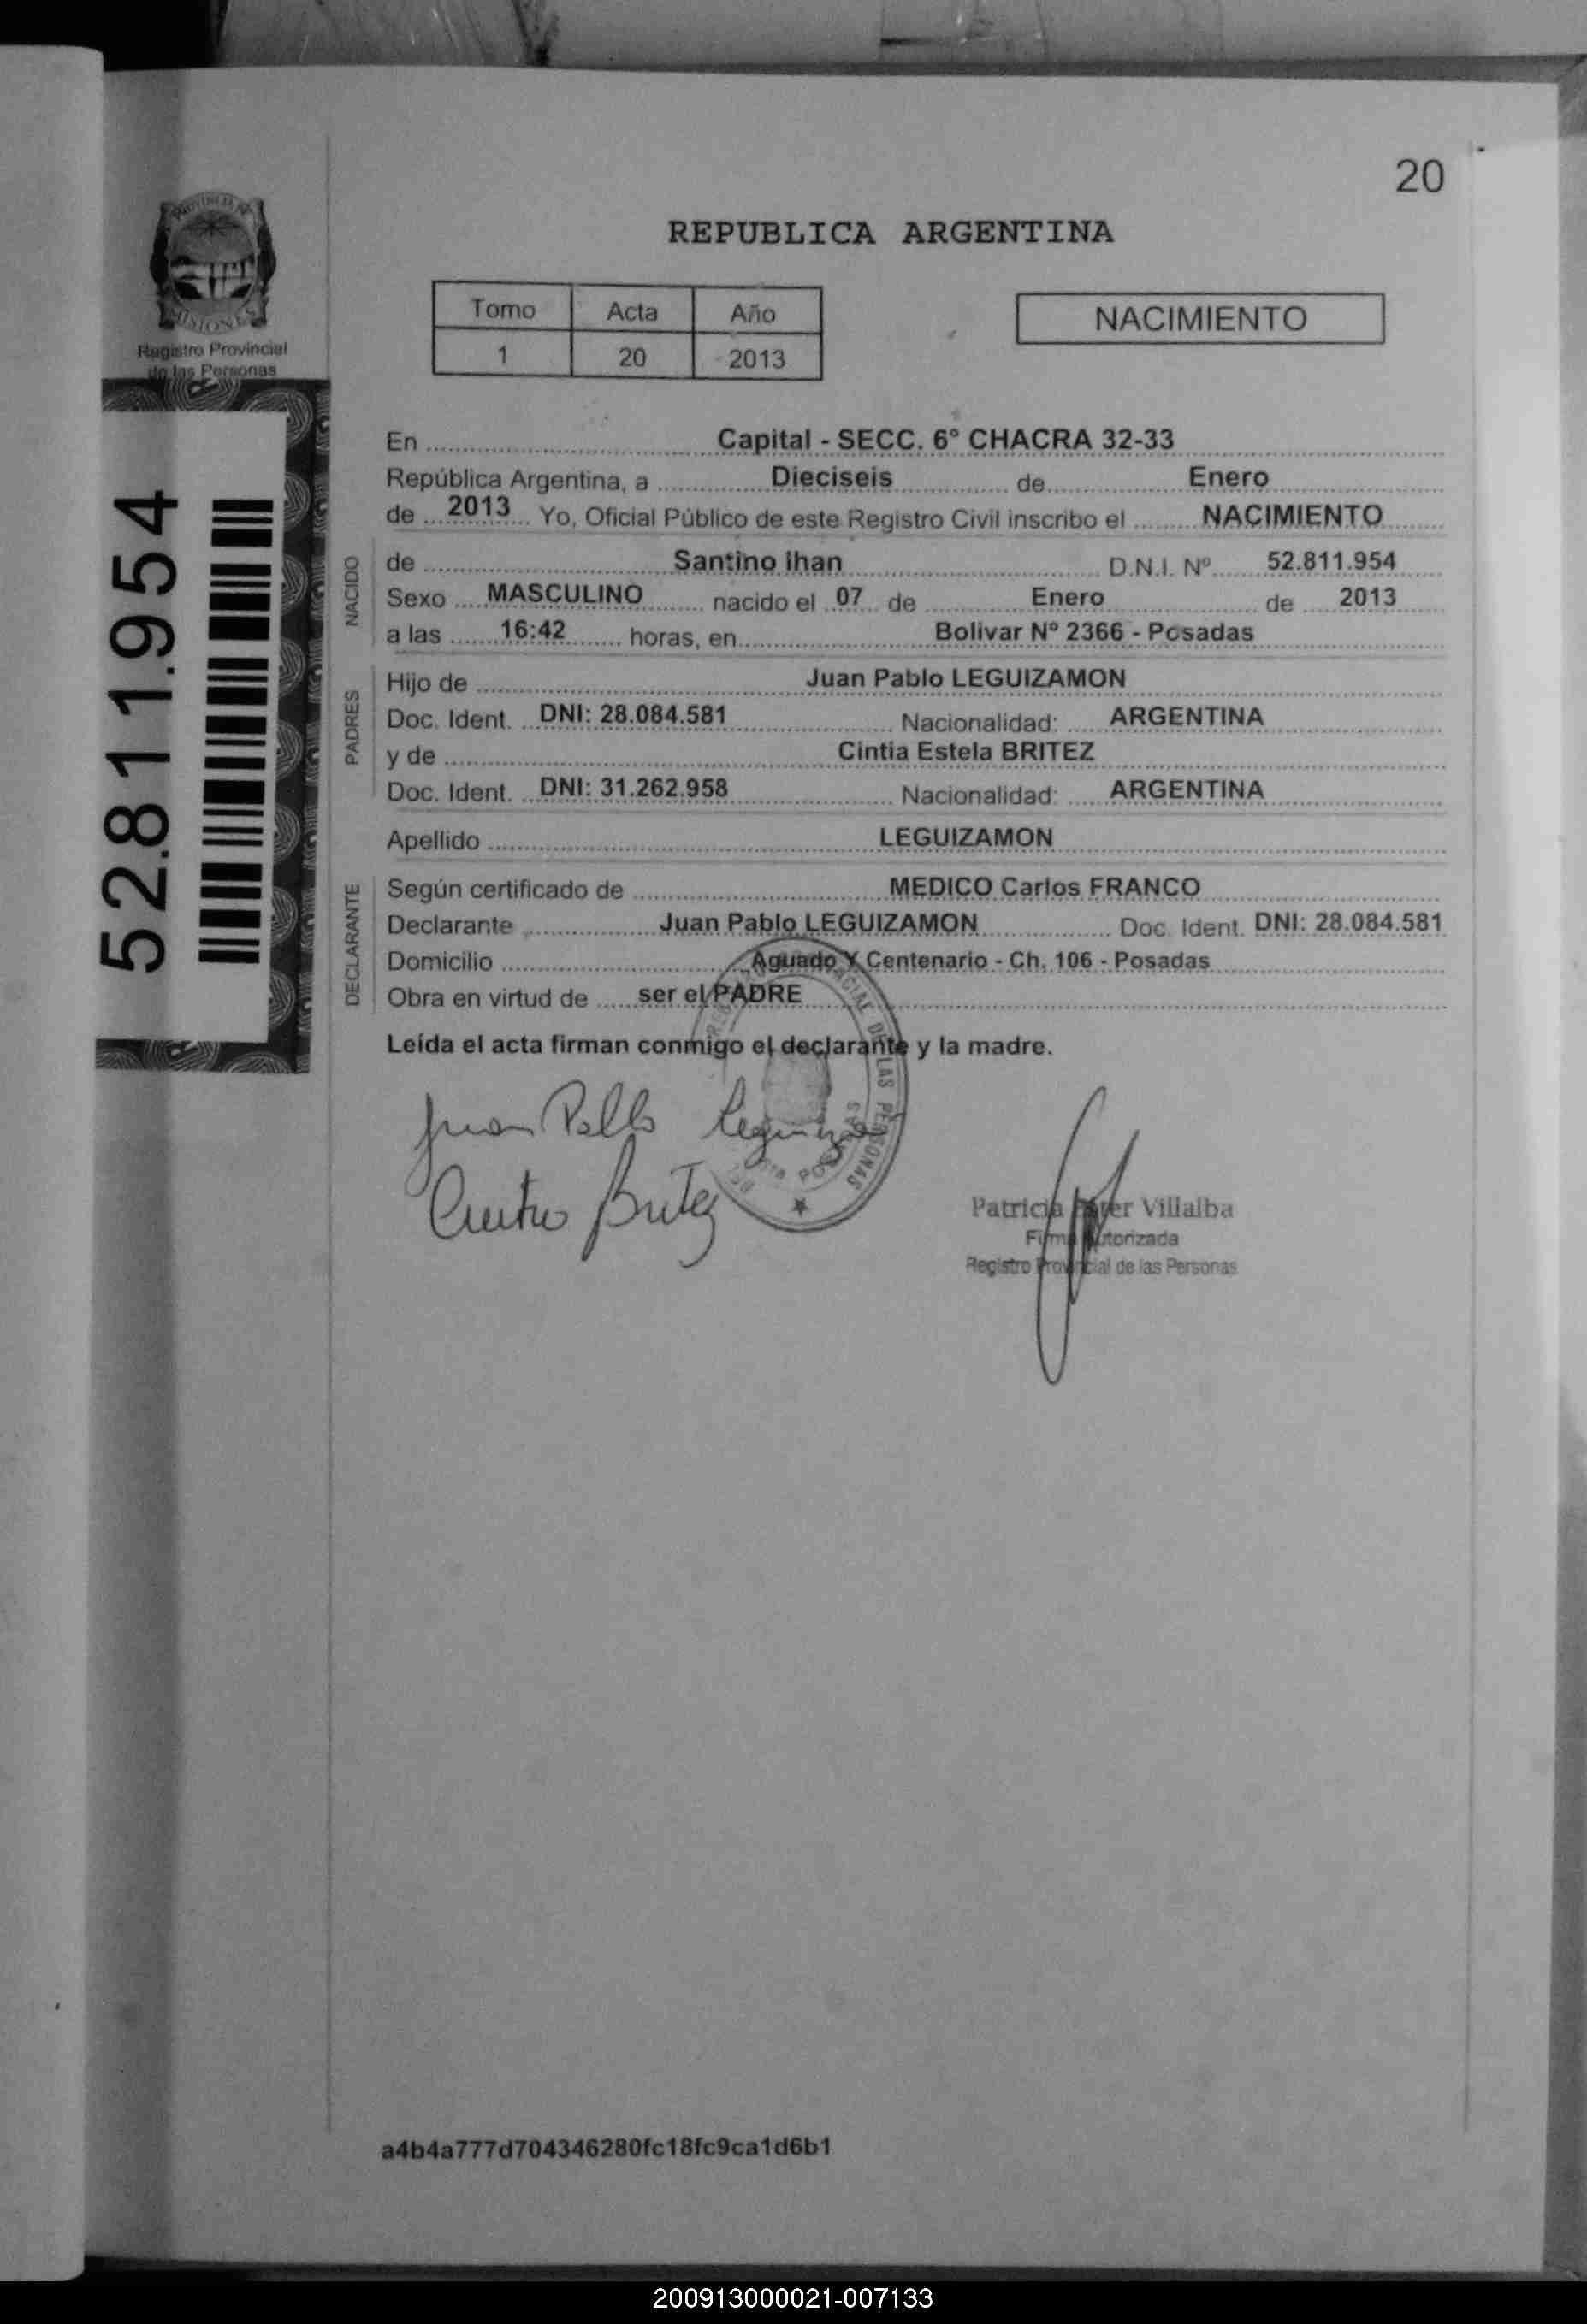 20
PROVINCIA DE
MISIONES
Registro Provincial
de las Personas
52.811.954
REPUBLICA ARGENTINA
Tomo Acta Año
1 20 2013
NACIMIENTO
En Capital - SECC. 6° CHACRA 32-33
República Argentina, a Dieciseis de Enero
de 2013 Yo, Oficial Público de este Registro Civil inscribo el NACIMIENTO
NACIDO
de Santino Ihan D.N.I. Nº 52.811.954
Sexo MASCULINO nacido el 07 de Enero de 2013
a las 16:42 horas, en Bolivar Nº 2366 - Posadas
PADRES
Hijo de Juan Pablo LEGUIZAMON
Doc. Ident. DNI: 28.084.581 Nacionalidad: ARGENTINA
y de Cintia Estela BRITEZ
Doc. Ident. DNI: 31.262.958 Nacionalidad: ARGENTINA
Apellido LEGUIZAMON
DECLARANTE
Según certificado de MEDICO Carlos FRANCO
Declarante Juan Pablo LEGUIZAMON Doc. Ident. DNI: 28.084.581
Domicilio Aguado Y Centenario - Ch. 106 - Posadas
Obra en virtud de ser el PADRE
Leída el acta firman conmigo el declarante y la madre.
Juan Pablo
DE LAS PERSONAS
POSADAS
Britez
Patricia Villalba
Firma Autorizada
Registro Provincial de las Personas
a4b4a777d704346280fc18fc9ca1d6b1
200913000021-007133